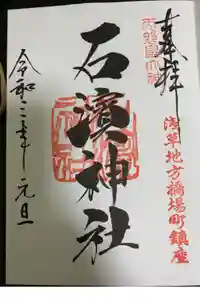 奉拝
浅草地方橋場町鎮座
石濱神社
令和三年元旦